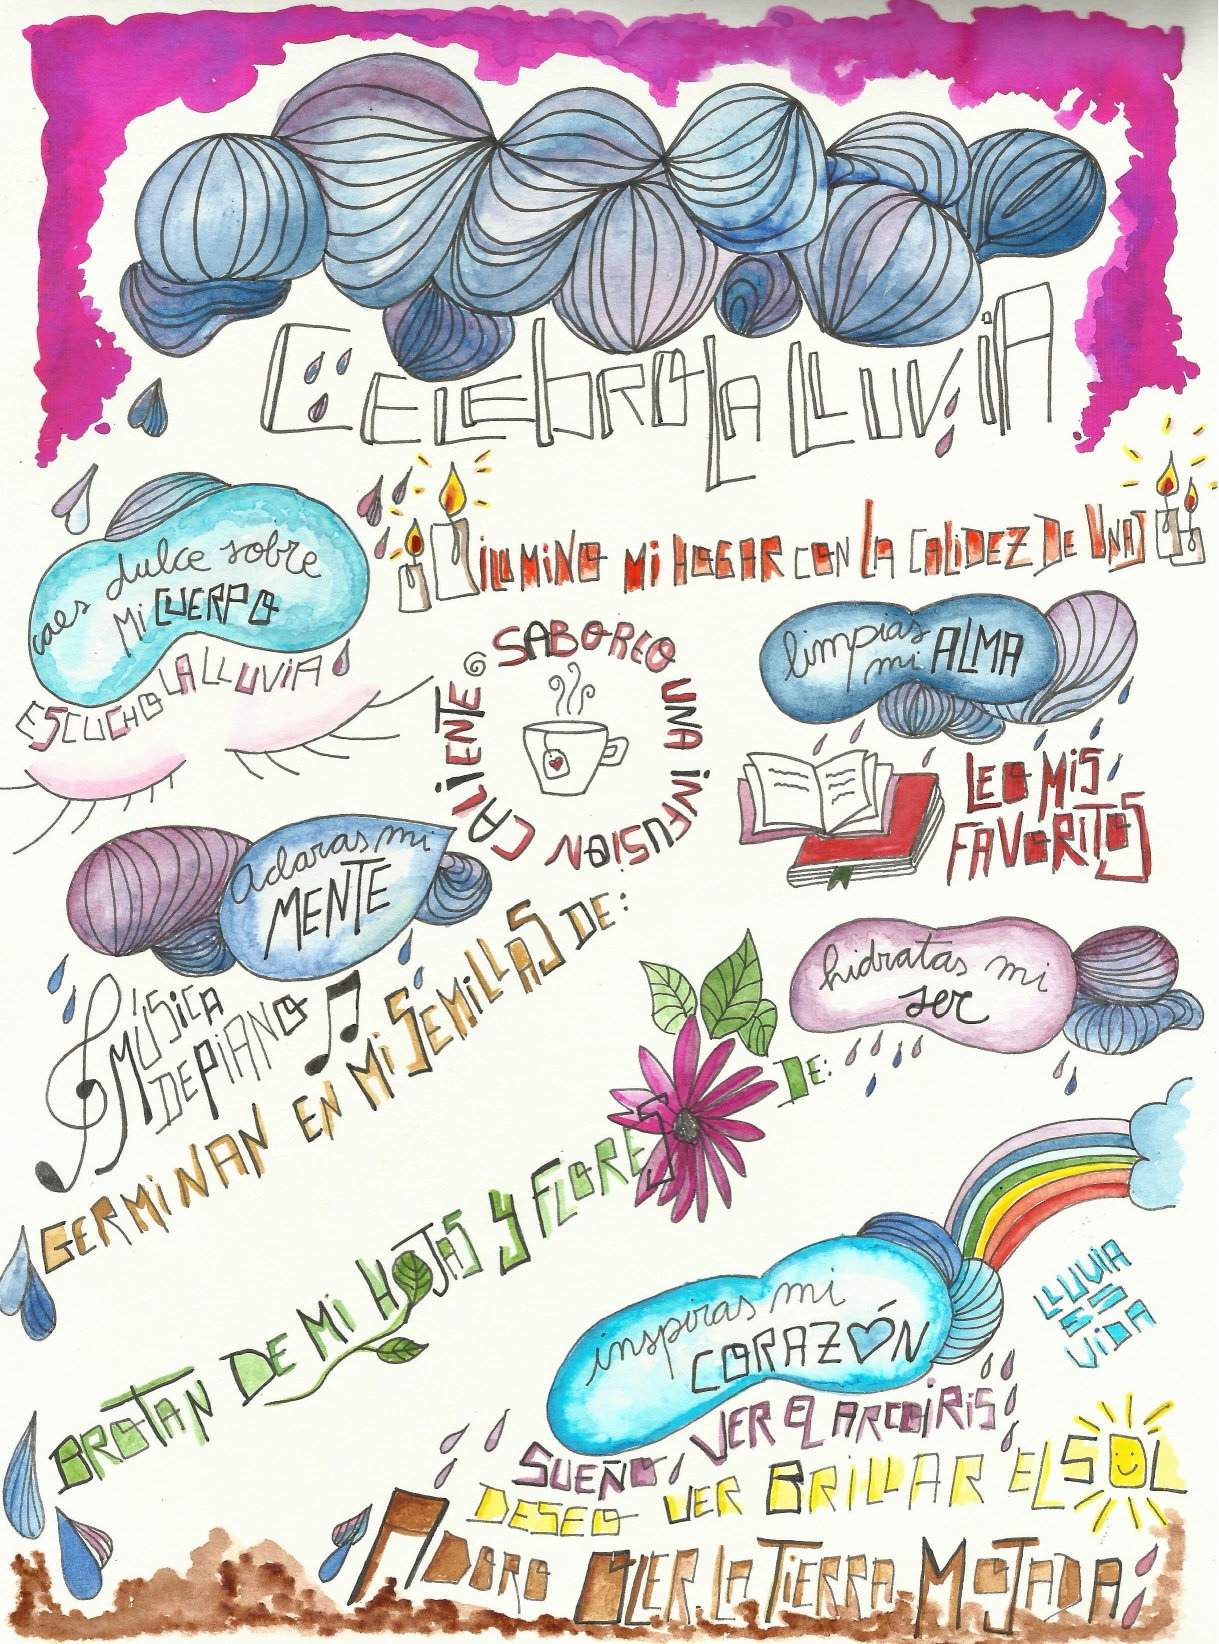 CELEBRO LA LLUVIA
caes dulce sobre
mi CUERPO
ILUMINO MI HOGAR CON LA CALIDEZ DE UNAS
ESCUCHO LA LLUVIA
SABOREO UNA INFUSION CALIENTE
limpias
mi ALMA
LEO MIS
FAVORITOS
aclaras mi
MENTE
MÚSICA
DE PIANO
hidratas mi
ser
GERMINAN EN MI SEMILLAS DE:
BROTAN DE MI HOJAS Y FLORES DE:
inspiras mi
CORAZÓN
LLUVIA
ES
VIDA
SUEÑO, VER EL ARCOIRIS
DESEO VER BRILLAR EL SOL
ADORO OLER LA TIERRA MOJADA